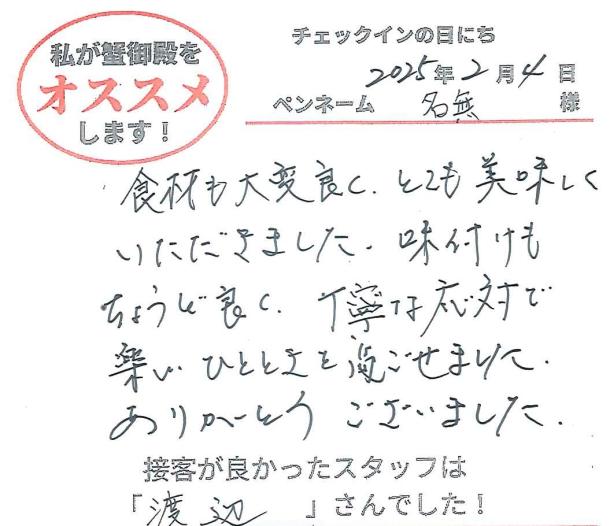 私が蟹御殿を
オススメ
します！
チェックインの日にち
2025年2月4日
ペンネーム 名無 様
食材も大変良く、とても美味しく
いただきました。味付けも
ちょうど良く、丁寧な応対で
楽しいひとときを過ごせました。
ありがとうございました。
接客が良かったスタッフは
「渡辺」さんでした！